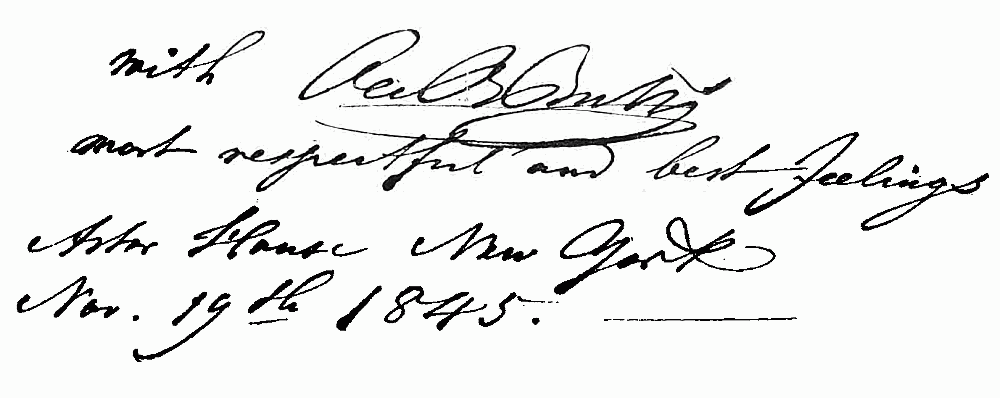 with
most respectful and best Feelings
Astor House New York
Nov. 19th 1845.